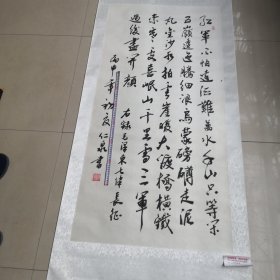 红軍不怕遠征難萬水千山只等闲
五嶺逶迤騰細浪烏蒙磅礴走泥
丸金沙水拍雲崖暖大渡橋橫鐵
索寒更喜岷山千里雪三軍
過後盡开顏
右録毛澤東七律長征
丙申年初夏仁泉書